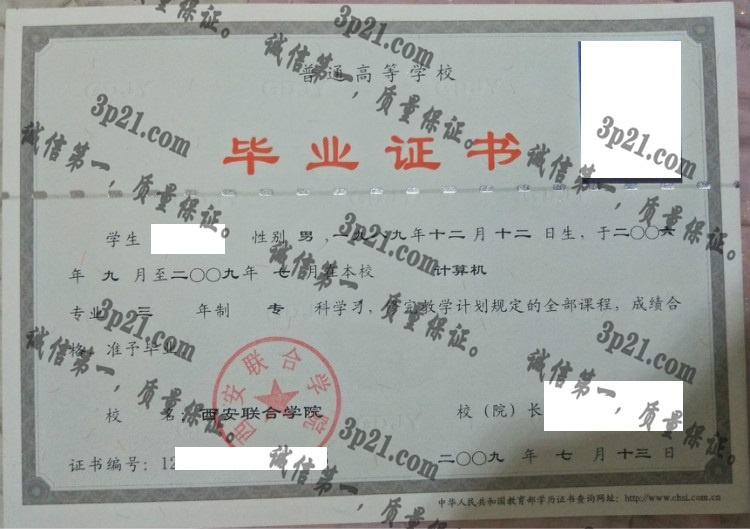 普通高等学校
毕业证书
学生 性别 男 ,一九八九年十二月十二日生，于二〇〇六
年 九 月至二〇〇九年 七 月在本校 计算机
专业 三 年制 专 科学习，修完教学计划规定的全部课程，成绩合
格，准予毕业
校 名：西安联合学院
校（院）长
证书编号：12
二〇〇九年 七 月十三日
中华人民共和国教育部学历证书查询网址：http://www.chsi.com.cn
西安联合学院
3p21.com
诚信第一，质量保证。
3p21.com
诚信第一，质量保证。
3p21.com
诚信第一，质量保证。
3p21.com
诚信第一，质量保证。
3p21.com
诚信第一，质量保证。
3p21.com
诚信第一，质量保证。
3p21.com
诚信第一，质量保证。
3p21.com
诚信第一，质量保证。